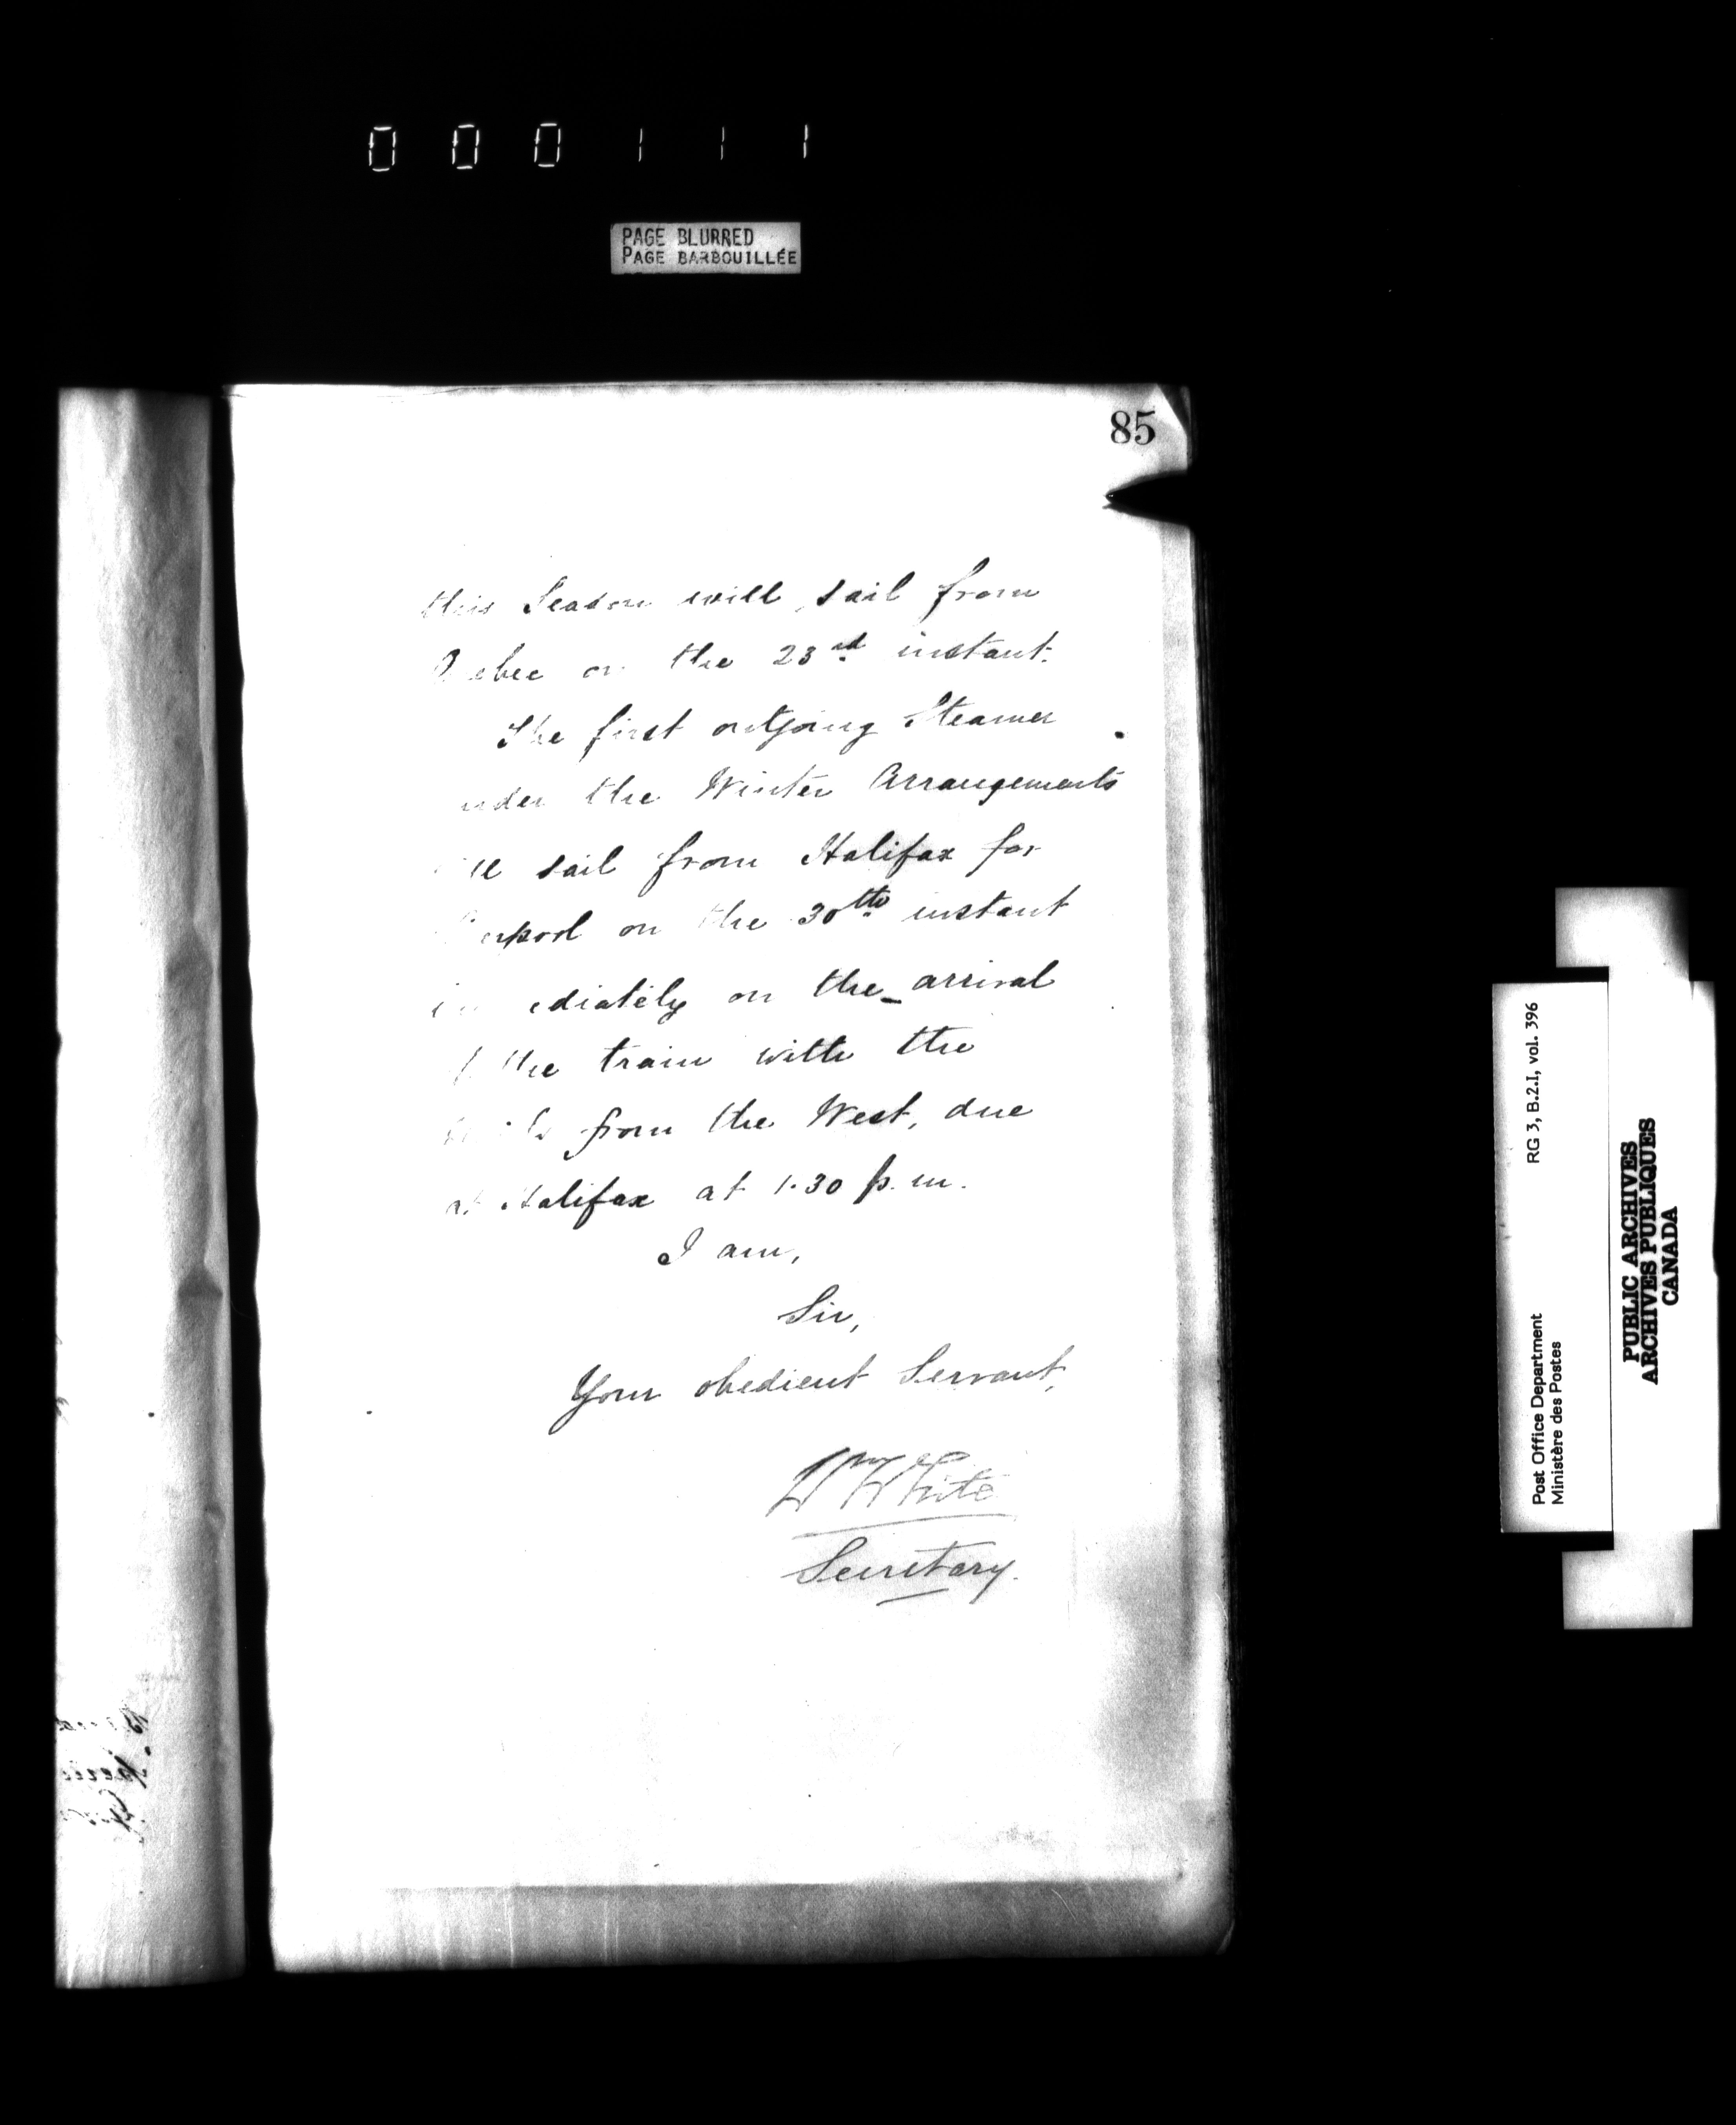 000111
PAGE BLURRED
PAGE BARBOUILLÉE
85
this Season will sail from
Quebec on the 23rd instant.
The first outgoing Steamer
under the Winter Arrangements
will sail from Halifax for
Liverpool on the 30th instant
immediately on the arrival
of the train with the
mails from the West, due
at Halifax at 1.30 p.m.
I am,
Sir,
Your obedient Servant,
Wm White
Secretary.
RG 3, B.2.I, vol. 396
Post Office Department
Ministère des Postes
PUBLIC ARCHIVES
ARCHIVES PUBLIQUES
CANADA